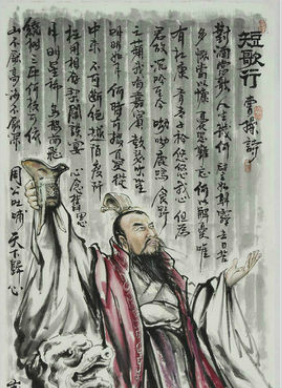 短歌行 曹操詩
對酒當歌人生幾何譬如朝露去日苦
多慨當以慷憂思難忘何以解憂唯
有杜康青青子衿悠悠我心但為
君故沉吟至今呦呦鹿鳴食野
之苹我有嘉賓鼓瑟吹笙
明明如月何時可掇憂從
中來不可斷絕越陌度阡
枉用相存契闊談宴
心念舊恩
月明星稀烏鵲南飛
繞樹三匝何枝可依
山不厭高海不厭深
周公吐哺天下歸心